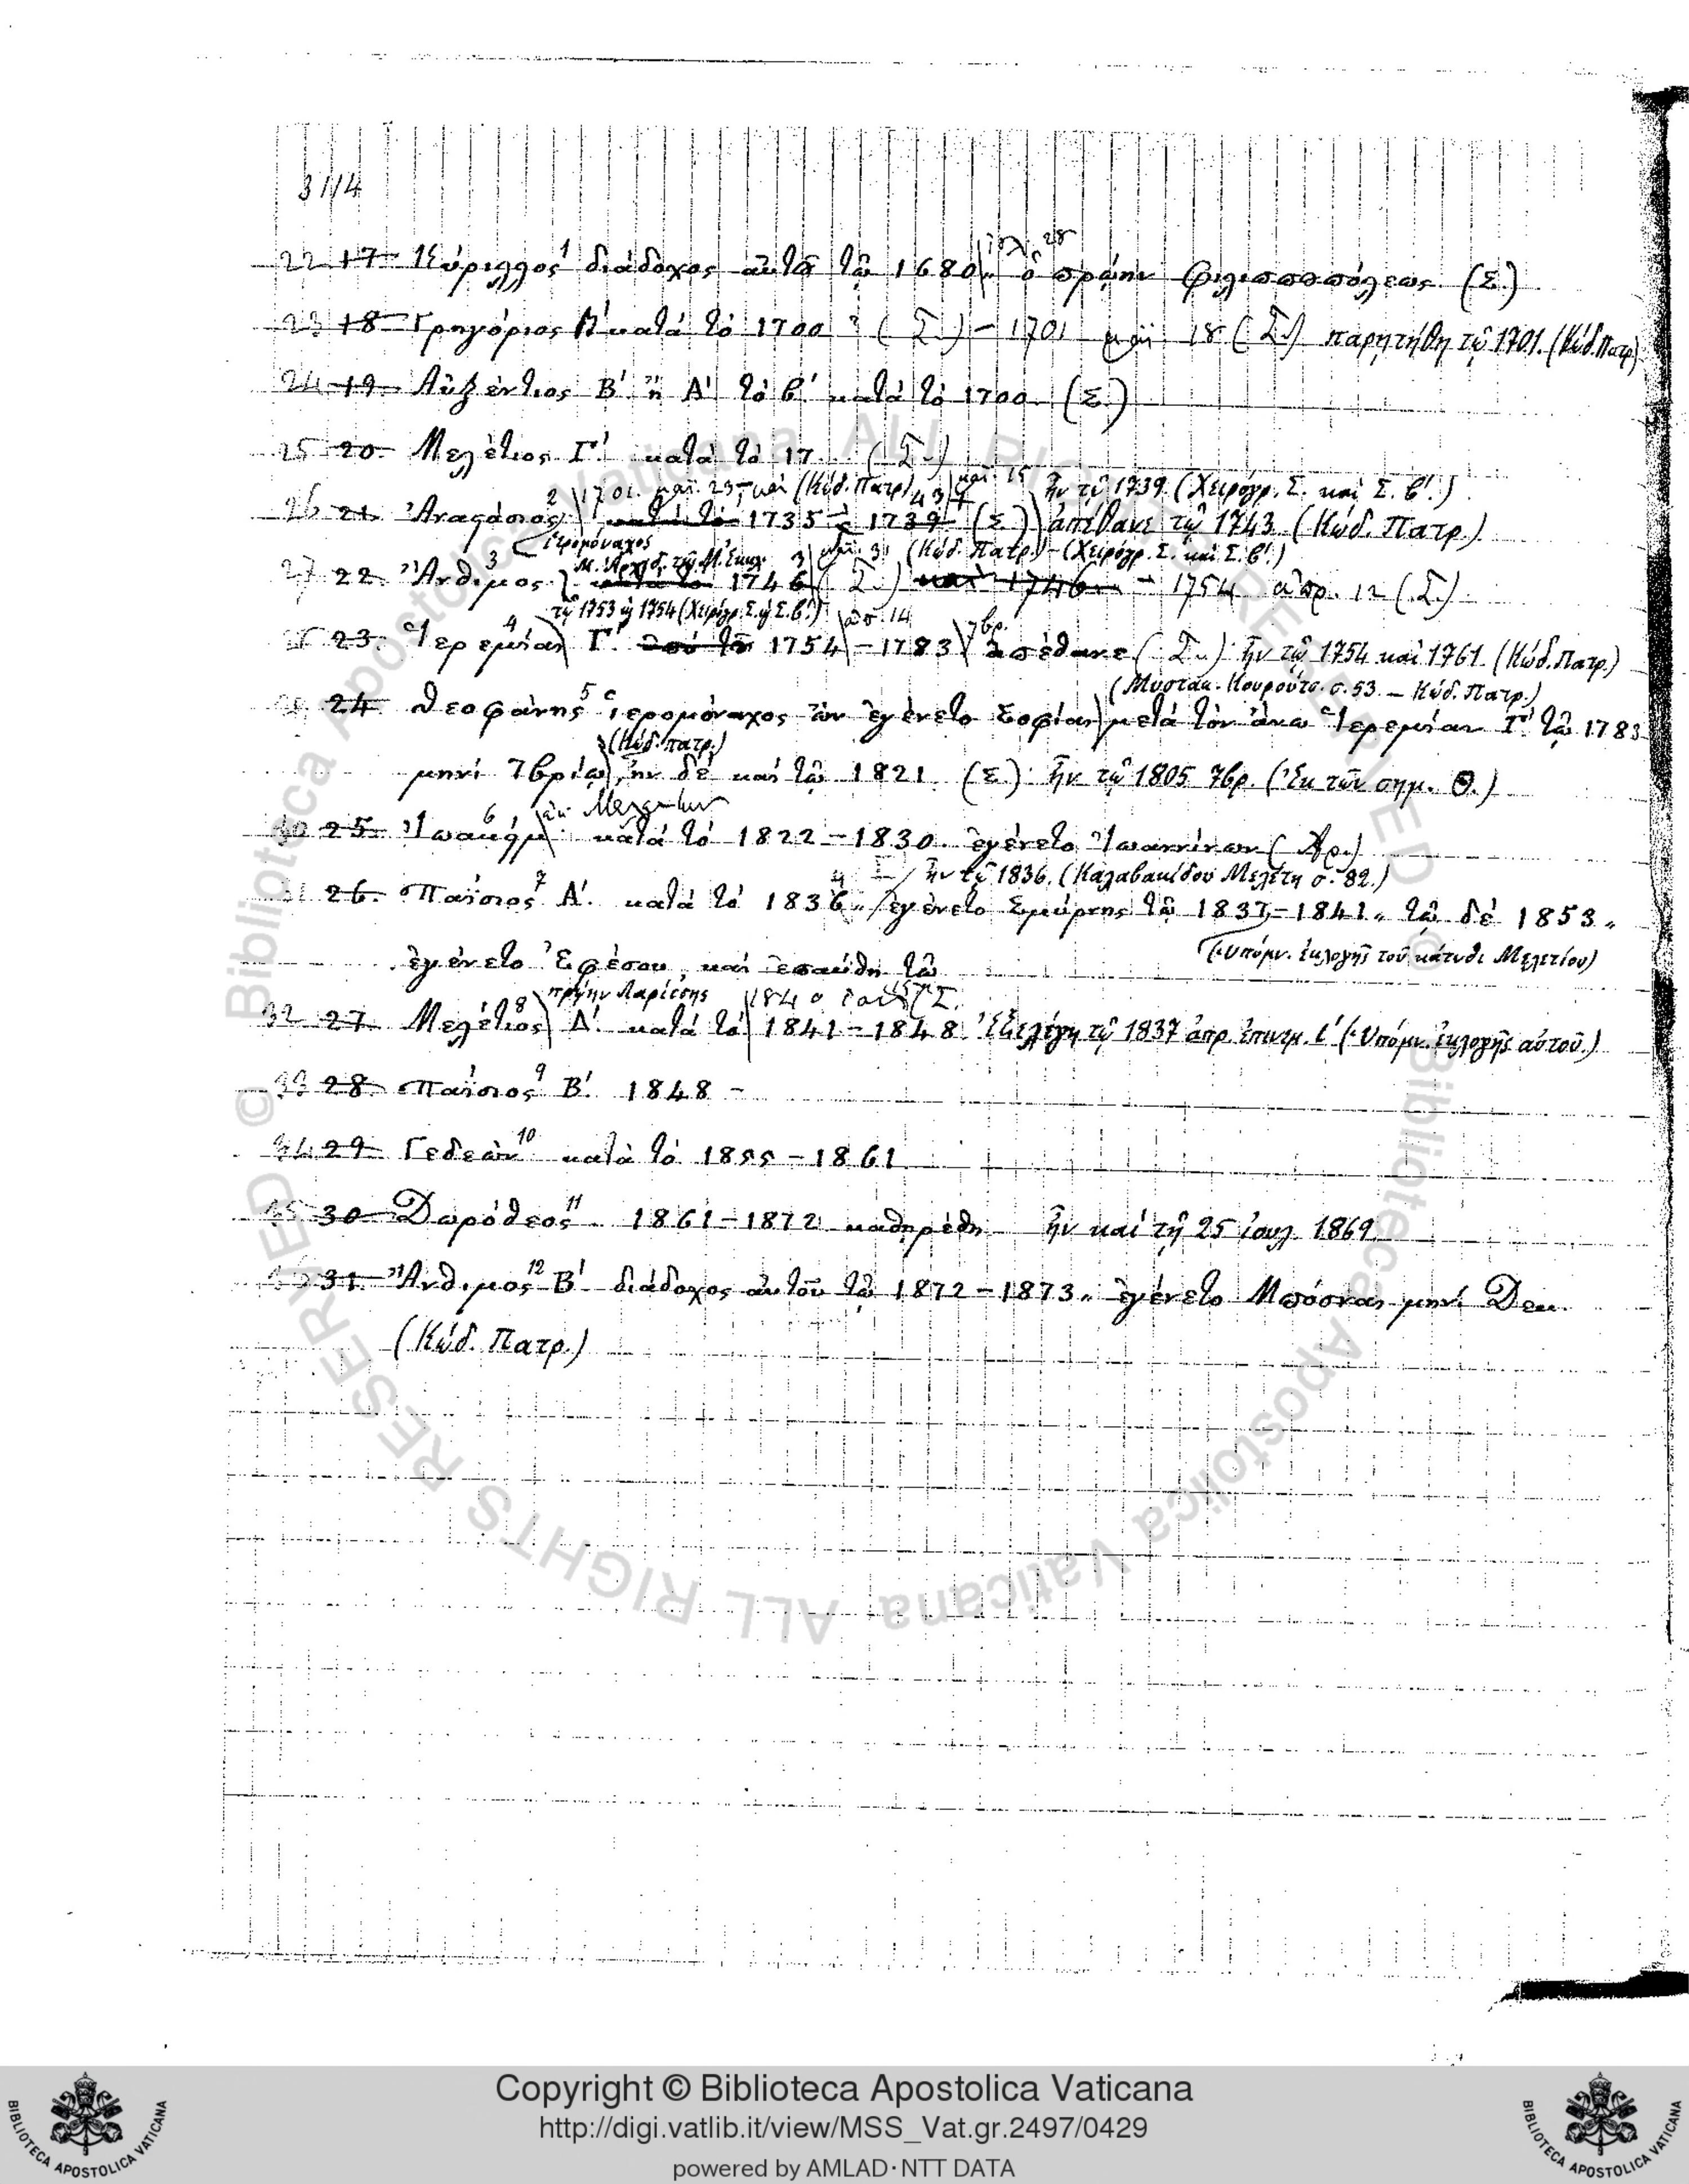 3114
22 17 Κύριλλος¹ διάδοχος αὐτοῦ τῷ 1680 ἰουλ. 28 ὁ πρῴην Φιλιππουπόλεως. (Σ.)
23 18 Γρηγόριος κατά τό 1700 ? (Σ.) – 1701 μαΐ 18 (Σ.) παρητήθη τῷ 1701. (Κώδ. Πατρ.)
24 19 Αὐξέντιος Β΄ ἤ Α΄ τό β΄ κατά τό 1700 (Σ.)
25 20 Μελέτιος Γ΄ κατά τό 17... (Σ.)
1701. μαΐ. 23 καί (Κώδ. Πατρ.) 43 μαΐ. 15 ἦν τῷ 1739. (Χειρόγρ. Σ. καί Σ. β΄.)
26 21 Ἀναστάσιος² κατά τό 1735 – 1739 (Σ.) ἀπέθανε τῷ 1743. (Κώδ. Πατρ.)
ἱερομόναχος
Μ. Ἀρχιδ. τῆς Μ. Ἐκκλ. 3 μαΐ. 31 (Κώδ. Πατρ.) – (Χειρόγρ. Σ. καί Σ. β΄.)
27 22. Ἄνθιμος³ κατά τό 1746 (Σ.) καί 1746 – 1754 ἀπρ. 12 (Σ.)
τῷ 1753 ἤ 1754 (Χειρόγρ. Σ. ἤ Σ. β΄.) ἀπ. 14 7βρ.
23. Ἱερεμίας⁴ Γ΄. ἀπό τοῦ 1754 – 1783 ἀπέθανε (Σ.) ἦν τῷ 1754 καί 1761. (Κώδ. Πατρ.)
(Μυστακ. Κουρούτσ. σ. 53. – Κώδ. Πατρ.)
24 Θεοφάνης⁵ ἱερομόναχος ὤν ἐγένετο Σοφίας μετά τόν ἄνω Ἱερεμίαν Γ΄ τῷ 1783
(Κώδ. πατρ.)
μηνί 7βρίῳ, ἦν δέ καί τῷ 1821 (Σ.) ἦν τῷ 1805 7βρ. (Ἐκ τῶν σημ. Θ.)
30 25 Ἰωακείμ⁶ κατά τό 1822 – 1830. ἐγένετο Ἰωαννίνων (Ἀρ.)
ἦν τῷ 1836. (Καλαβακίδου Μελέτη σ. 82.)
31 26. Παΐσιος⁷ Α΄. κατά τό 1836. ἐγένετο Σμύρνης τῷ 1837 – 1841. τῷ δέ 1853.
ἐγένετο Ἐφέσου, καί ἐπαύθη τῷ (Ὑπόμν. ἐκλογῆς τοῦ κάτωθι Μελετίου)
πρῴην Λαρίσσης 1840
32 27. Μελέτιος⁸ Δ΄. κατά τό 1841 – 1848. Ἐξελέγη τῷ 1837 ἀπρ. ἐπινεμ. ι΄ (Ὑπόμν. ἐκλογῆς αὐτοῦ.)
33 28 Παΐσιος⁹ Β΄. 1848 –
34 29 Γεδεών¹⁰ κατά τό 1855 – 1861
35 30 Δωρόθεος¹¹ 1861 – 1872 καθῃρέθη ἦν καί τῇ 25 ἰουλ. 1869.
31 Ἄνθιμος¹² Β΄. διάδοχος αὐτοῦ τῷ 1872 – 1873. ἐγένετο Μπόσνας μηνί Δεκ.
(Κώδ. Πατρ.)
© Biblioteca Apostolica Vaticana ALL RIGHTS RESERVED
© Biblioteca Apostolica Vaticana ALL RIGHTS RESERVED
Copyright © Biblioteca Apostolica Vaticana
http://digi.vatlib.it/view/MSS_Vat.gr.2497/0429
powered by AMLAD·NTT DATA
BIBLIOTECA APOSTOLICA VATICANA
BIBLIOTECA APOSTOLICA VATICANA